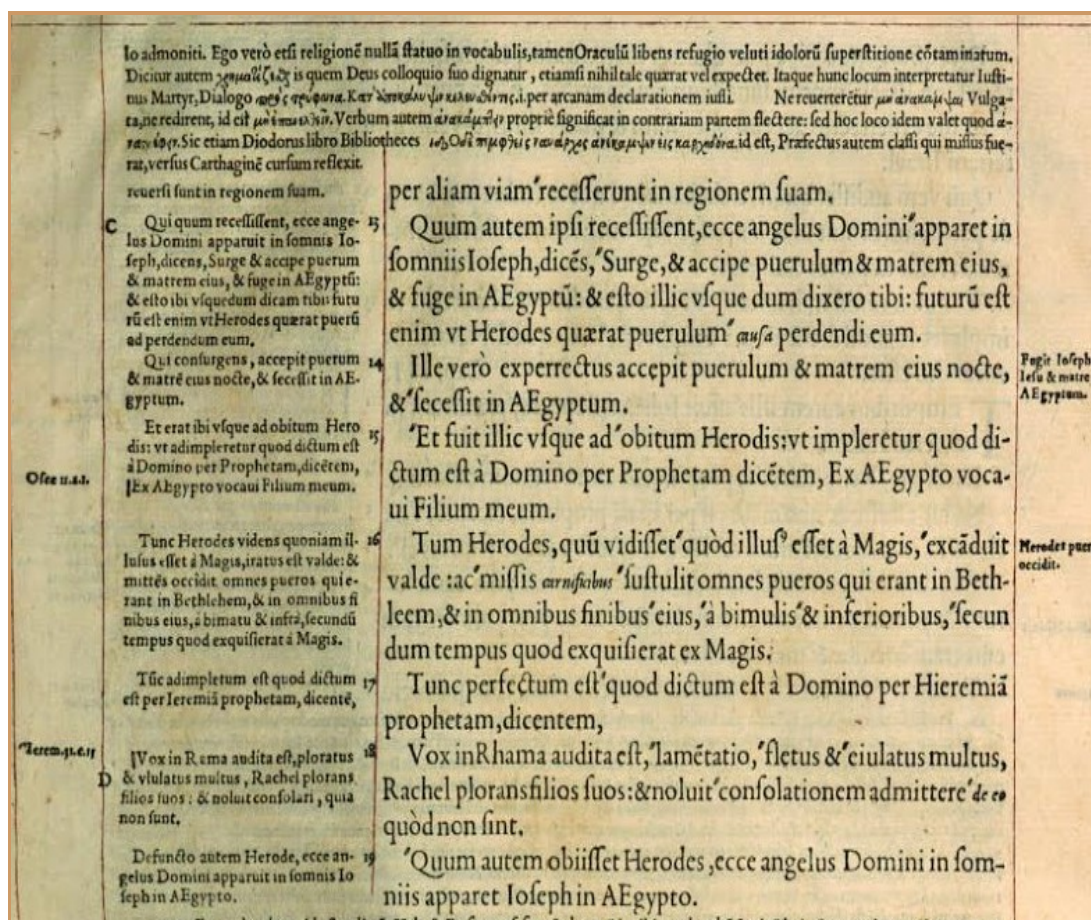 lo admoniti. Ego verò etsi religionē nullā statuo in vocabulis,tamen Oraculū libens refugio veluti idolorū superstitione cōtaminatum.
Dicitur autem is quem Deus colloquio suo dignatur , etiamsi nihil tale quærat vel expectet. Itaque hunc locum interpretatur Iusti-
nus Martyr, Dialogo .i. per arcanam declarationem iussi. Ne reuerterētur Vulga-
ta,ne redirent, id est Verbum autem propriè significat in contrariam partem flectere: sed hoc loco idem valet quod
Sic etiam Diodorus libro Bibliotheces id est, Præfectus autem classi qui missus fue-
rat, versus Carthaginē cursum reflexit.
reuersi sunt in regionem suam.
C Qui quum recessissent, ecce ange-
lus Domini apparuit in somnis Io-
seph,dicens,Surge & accipe puerum
& matrem eius, & fuge in AEgyptū:
& esto ibi vsquedum dicam tibi: futu
rū est enim vt Herodes quærat puerū
ad perdendum eum.
Qui consurgens, accepit puerum
& matrē eius nocte, & secessit in AE-
gyptum.
Et erat ibi vsque ad obitum Hero
dis: vt adimpleretur quod dictum est
à Domino per Prophetam,dicētem,
Ex AEgypto vocaui Filium meum.
Osee 11.a.1.
Tunc Herodes videns quoniam il-
lusus esset à Magis,iratus est valde: &
mittēs occidit omnes pueros qui e-
rant in Bethlehem,& in omnibus fi
nibus eius,à bimatu & infrà,secundū
tempus quod exquisierat à Magis.
Tūc adimpletum est quod dictum
est per Ieremiā prophetam, dicentē,
Ierem.31.c.15
Vox in Rama audita est,ploratus
D & vlulatus multus , Rachel plorans
filios suos : & noluit consolari , quia
non sunt.
Defuncto autem Herode, ecce an-
gelus Domini apparuit in somnis Io
seph in AEgypto.
per aliam viam recesserunt in regionem suam.
13 Quum autem ipsi recessissent,ecce angelus Domini apparet in
somniis Ioseph,dicēs, Surge,& accipe puerulum & matrem eius,
& fuge in AEgyptū: & esto illic vsque dum dixero tibi: futurū est
enim vt Herodes quærat puerulum causa perdendi eum.
14 Ille verò experrectus accepit puerulum & matrem eius nocte,
& secessit in AEgyptum.
Fugit Ioseph
Iesu & matre
AEgyptum.
15 Et fuit illic vsque ad obitum Herodis: vt impleretur quod di-
ctum est à Domino per Prophetam dicētem, Ex AEgypto voca-
ui Filium meum.
16 Tum Herodes,quū vidisset quòd illusꝰ esset à Magis, excāduit
valde :ac missis carnificibus sustulit omnes pueros qui erant in Beth-
leem,& in omnibus finibus eius, à bimulis & inferioribus, secun
dum tempus quod exquisierat ex Magis.
Herodes puer
occidit.
17 Tunc perfectum est quod dictum est à Domino per Hieremiā
prophetam,dicentem,
18 Vox in Rhama audita est, lamētatio, fletus & eiulatus multus,
Rachel plorans filios suos:& noluit consolationem admittere de eo
quòd non sint.
19 Quum autem obiisset Herodes ,ecce angelus Domini in som-
niis apparet Ioseph in AEgypto.